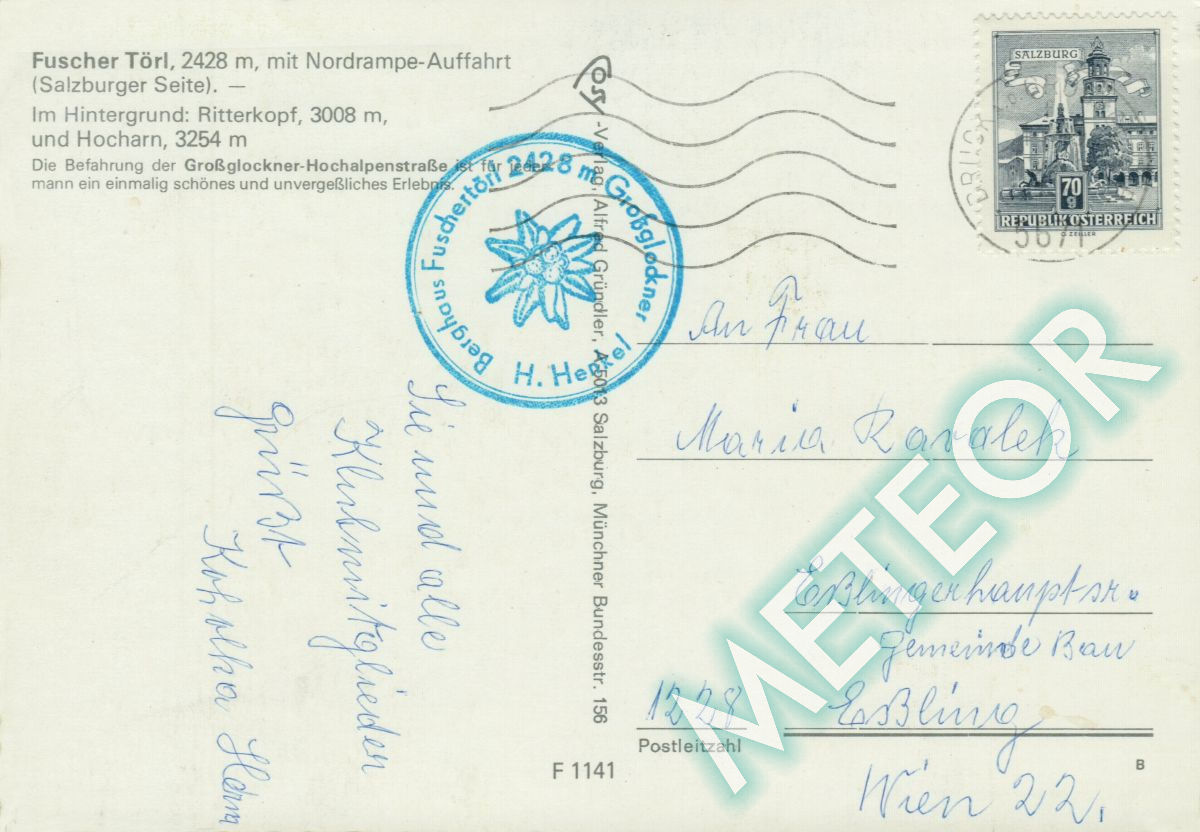 Fuscher Törl, 2428 m, mit Nordrampe-Auffahrt
(Salzburger Seite). —
Im Hintergrund: Ritterkopf, 3008 m,
und Hocharn, 3254 m
Die Befahrung der Großglockner-Hochalpenstraße ist für jeder-
mann ein einmalig schönes und unvergeßliches Erlebnis.
Berghaus Fuschertörl 2428 m Großglockner
H. Henkel
-Verlag, Alfred Gründler, A-5013 Salzburg, Münchner Bundesstr. 156
SALZBURG
70
g
REPUBLIK ÖSTERREICH
O. ZEILLER
BRUCK
5671
Sie und alle
Klubmitglieden
grüßt
An Frau
Maria Kavalek
Eßlingerhauptsr.
Gemeinde Bau
1228 Eßling
Postleitzahl
Wien 22.
F 1141
B
METEOR